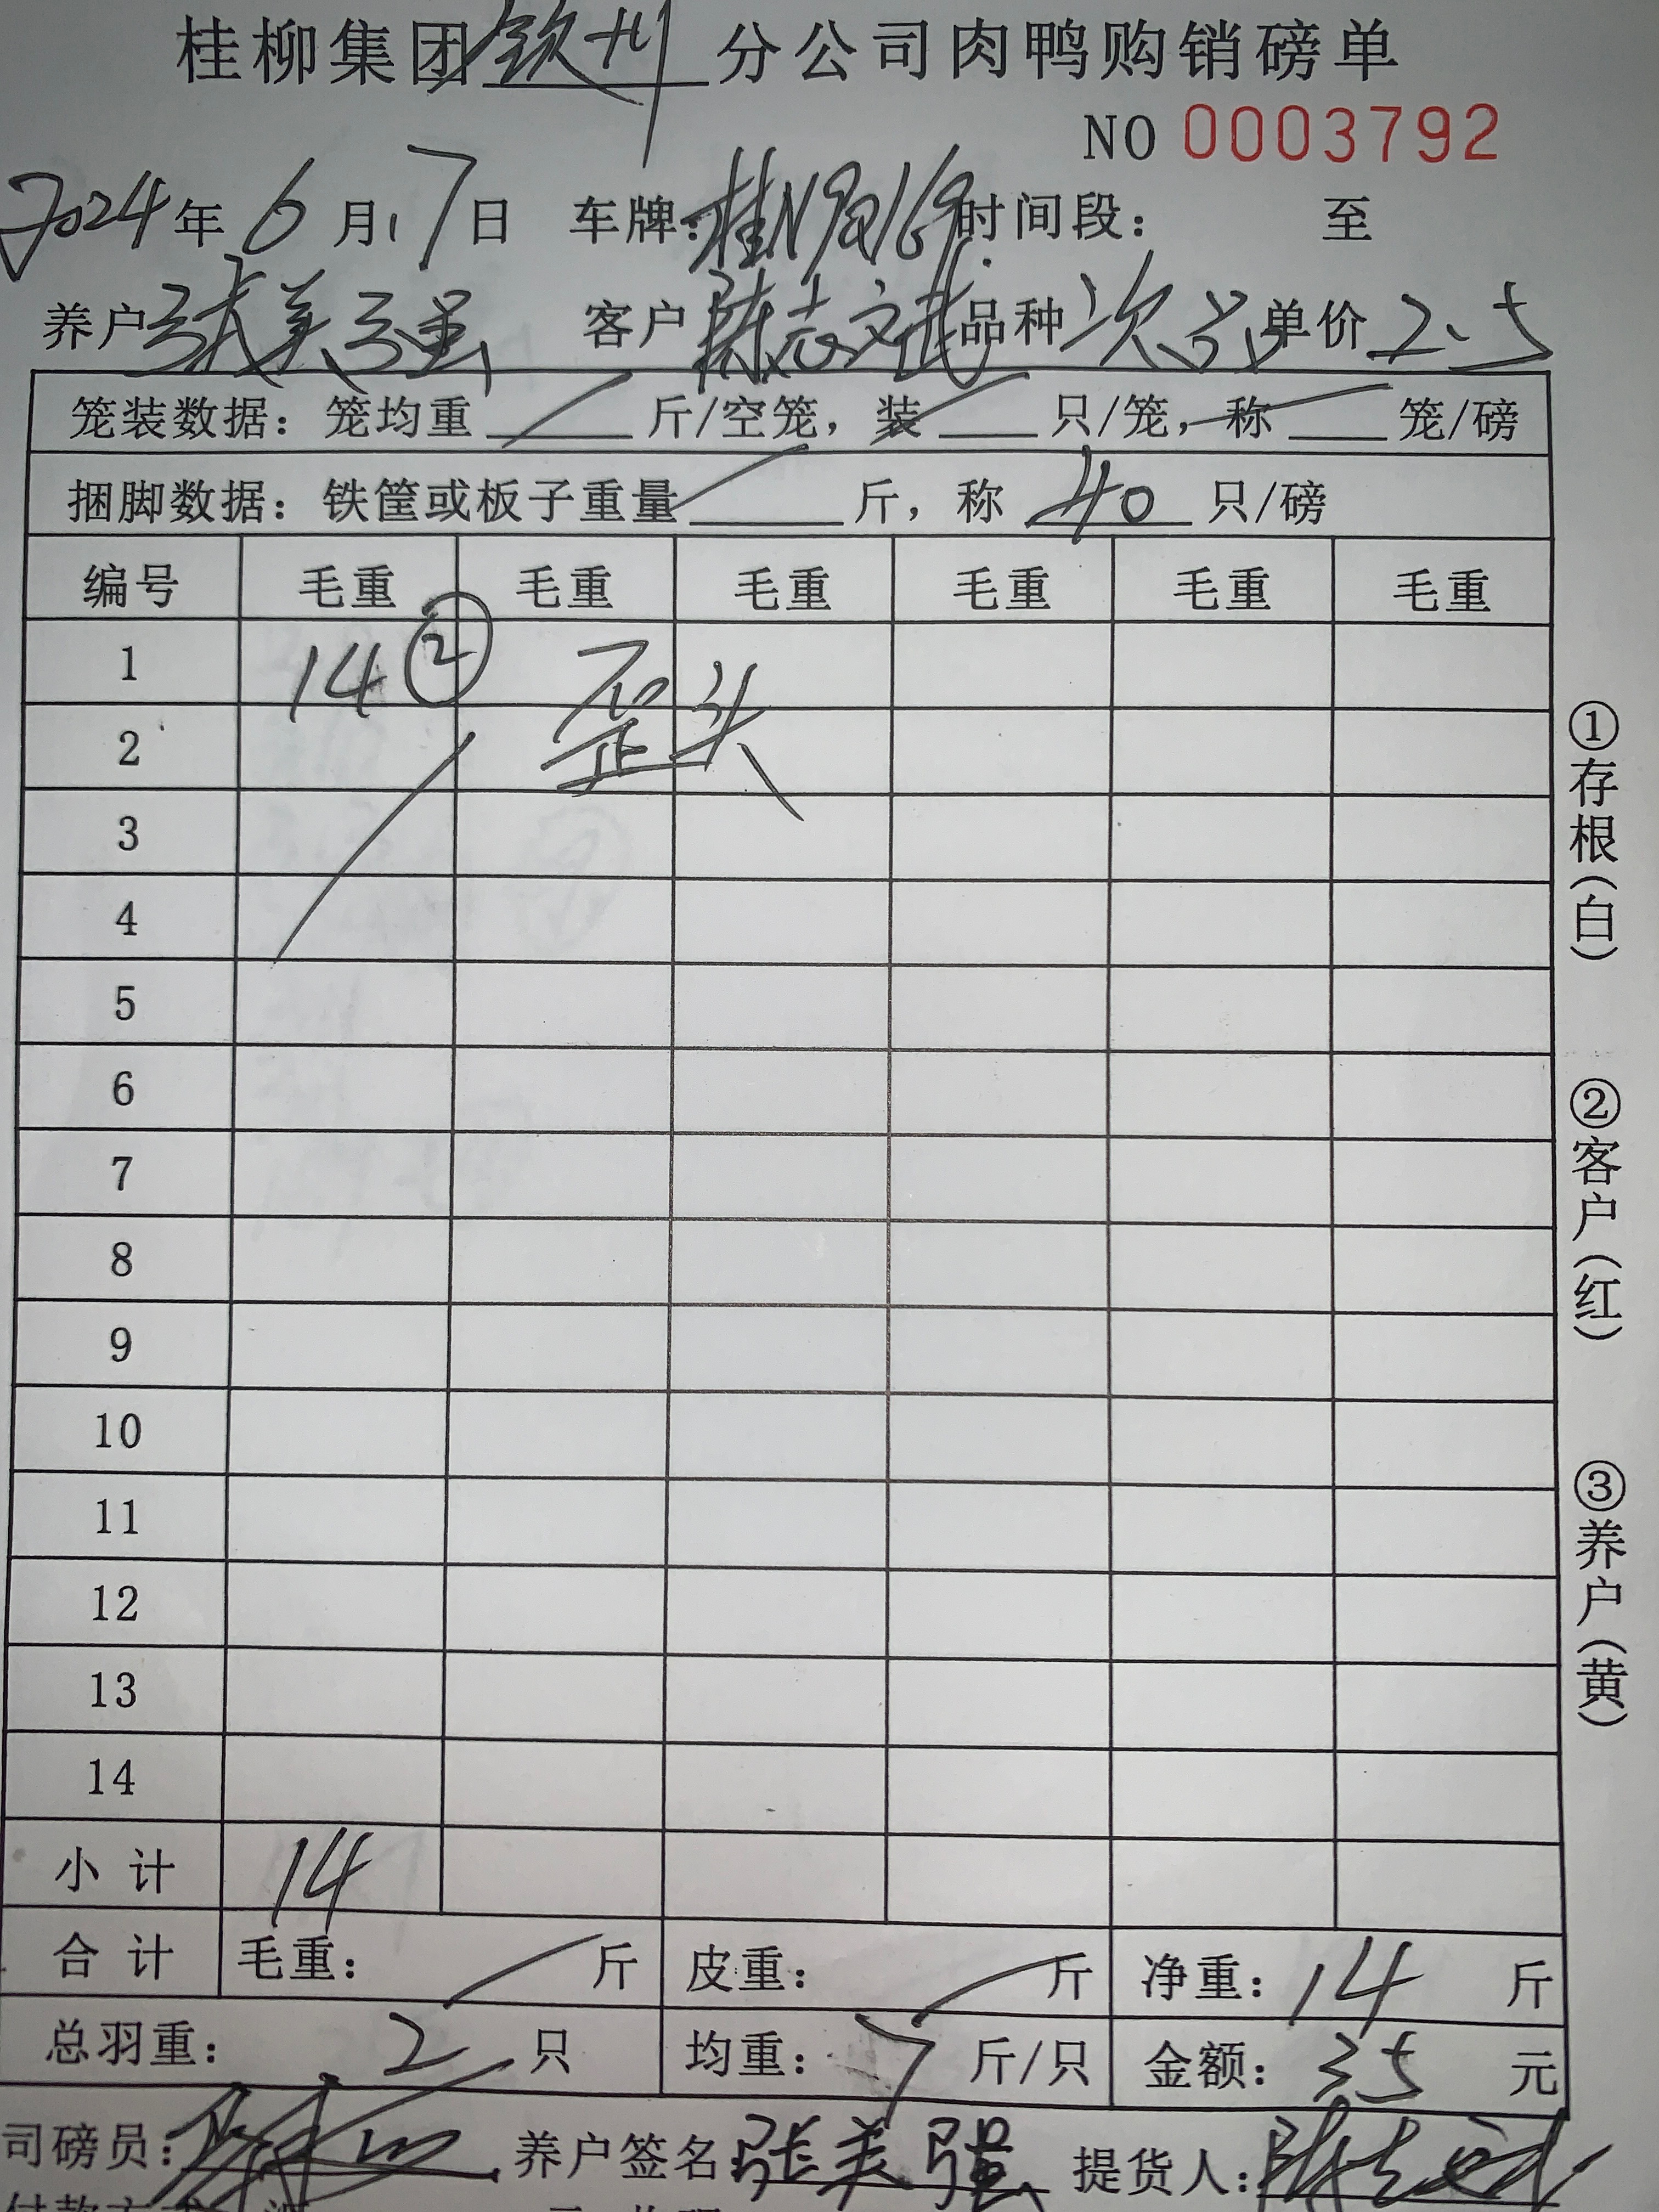 桂柳集团钦州分公司肉鸭购销磅单
NO 0003792
2024年6月17日 车牌:桂N9Q169 时间段: 至
养户张美强 客户陈志文武 品种次品 单价2.5
笼装数据: 笼均重 斤/空笼, 装 只/笼, 称 笼/磅
捆脚数据: 铁筐或板子重量 斤, 称 40 只/磅
编号 毛重 毛重 毛重 毛重 毛重 毛重
1 14 ② 歪头
2
3
4
5
6
7
8
9
10
11
12
13
14
小计 14
合计 毛重: 斤 皮重: 斤 净重: 14 斤
总羽重: 2 只 均重: 7 斤/只 金额: 35 元
司磅员: 养户签名 张美强 提货人:
①存根(白)
②客户(红)
③养户(黄)